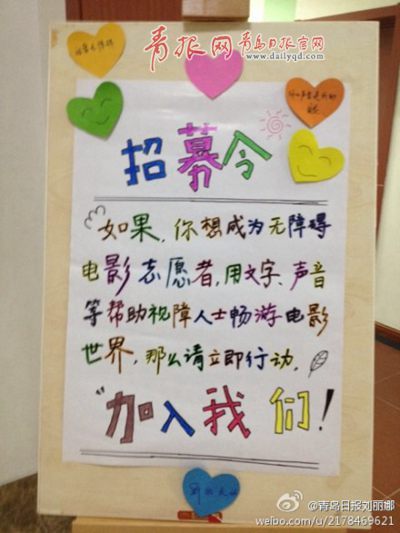 青报网 青岛日报官网
www.dailyqd.com
招募令
如果,你想成为无障碍
电影志愿者,用文字、声音
等帮助视障人士畅游电影
世界,那么请立即行动,
"加入我们!
@青岛日报刘丽娜
weibo.com/u/2178469621